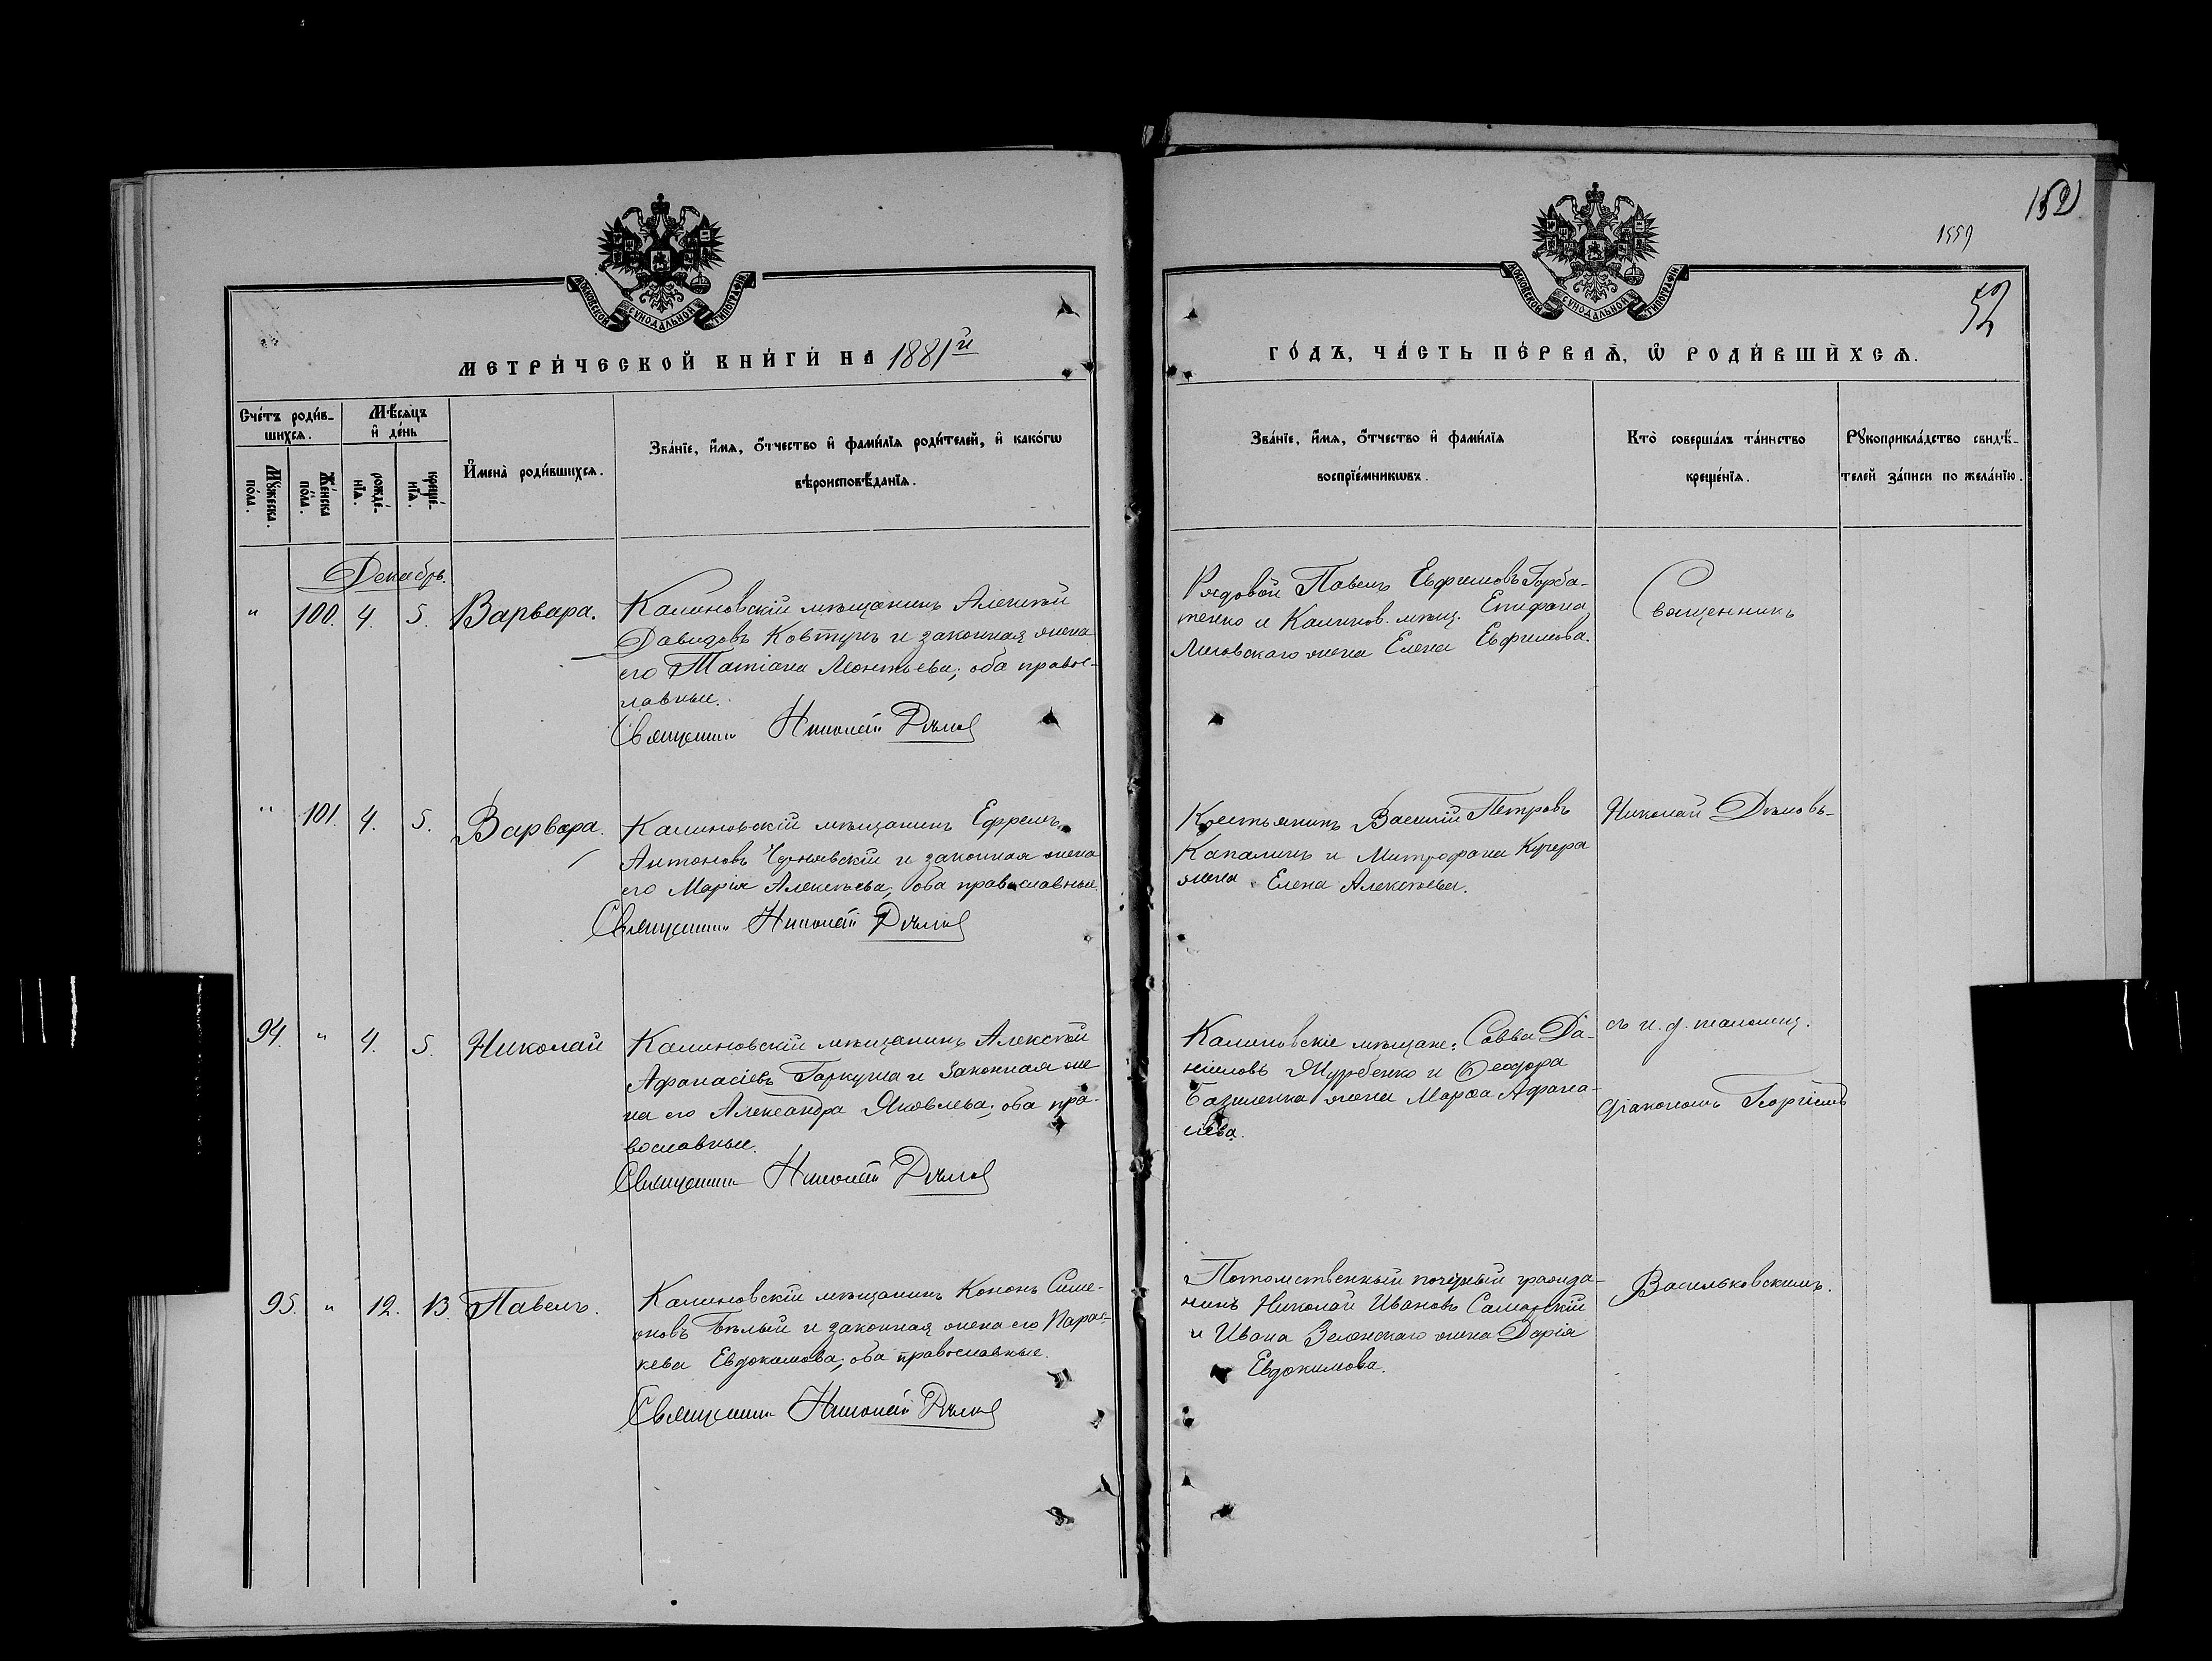 МОСКОВСКОЙ СѴНОДАЛЬНОЙ ТИПОГРАФІИ
МЕТРИ́ЧЕСКОЙ КНИ́ГИ НА 1881й
Сче́тъ роди́в-
шихсѧ.
Мѣ́сѧцъ
и҆ де́нь
Мꙋ́жеска
по́ла.
Же́нска
по́ла.
рожде́-
нїѧ.
креще́-
нїѧ.
И҆мена̀ роди́вшихсѧ.
Зва́нїе, и҆́мѧ, ѻ҆́тчество и҆ фами́лїѧ роди́телей, и҆ како́гѡ
вѣроисповѣ́данїѧ.
Декабрь.
" 100. 4. 5. Варвара.
Калиновскій мѣщанинъ Алексѣй
Давидовъ Ковтунъ и законная жена
его Татіана Леонтьева; оба правос-
лавные.
Священникъ Николай Дѣмовъ
" 101. 4. 5. Варвара.
Калиновскій мѣщанинъ Ефремъ
Антоновъ Чернявскій и законная жена
его Марія Алексѣева; оба православные.
Священникъ Николай Дѣмовъ
94. " 4. 5. Николай
Калиновскій мѣщанинъ Алексѣй
Афанасіевъ Гаркуша и законная же
на его Александра Яковлева; оба пра-
вославные.
Священникъ Николай Дѣмовъ
95. " 12. 13. Павелъ.
Калиновскій мѣщанинъ Кононъ Симе-
оновъ Бѣлый и законная жена его Парас-
кева Евдокимова; оба православные.
Священникъ Николай Дѣмовъ
152
1559
52
МОСКОВСКОЙ СѴНОДАЛЬНОЙ ТИПОГРАФІИ
ГО́ДЪ, ЧА́СТЬ ПЕ́РВАѦ, Ѡ҆ РОДИ́ВШИХСѦ.
Зва́нїе, и҆́мѧ, ѻ҆́тчество и҆ фами́лїѧ
воспрїе́мникѡвъ.
Кто̀ соверша́лъ та́инство
креще́нїѧ.
Рꙋкоприкла́дство свидѣ́-
телей за́писи по жела́нїю.
Рядовой Павелъ Евфимовъ Горба-
тенко и Калинов. мѣщ. Епифана
жена Елена Евфимова.
Крестьянинъ Василій Петровъ
Капалинъ и Митрофана Кучера
жена Елена Алексѣева.
Калиновскіе мѣщане: Савва Да-
ніиловъ Журбенко и Ѳеодора
Базиленка жена Марѳа Афана-
сіева.
Потомственный почетный гражда-
нинъ Николай Ивановъ Самарскій
и Ивана Зеленскаго жена Дарія
Евдокимова.
Священникъ
Николай Дѣмовъ
съ и. д. псаломщ.
діакономъ Георгіемъ
Васильковскимъ.